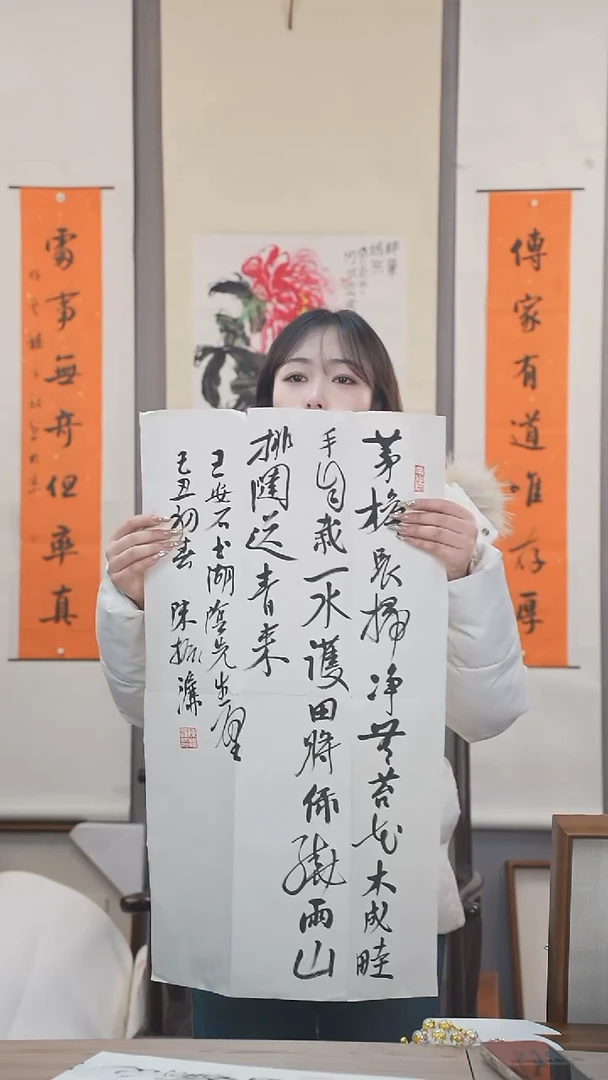 傳家有道唯存厚
茅檐長掃净無苔花木成畦
手自栽一水護田將綠繞兩山
排闥送青來
王安石書湖陰先生壁
己丑初春 陳振濂
處事無奇但率真